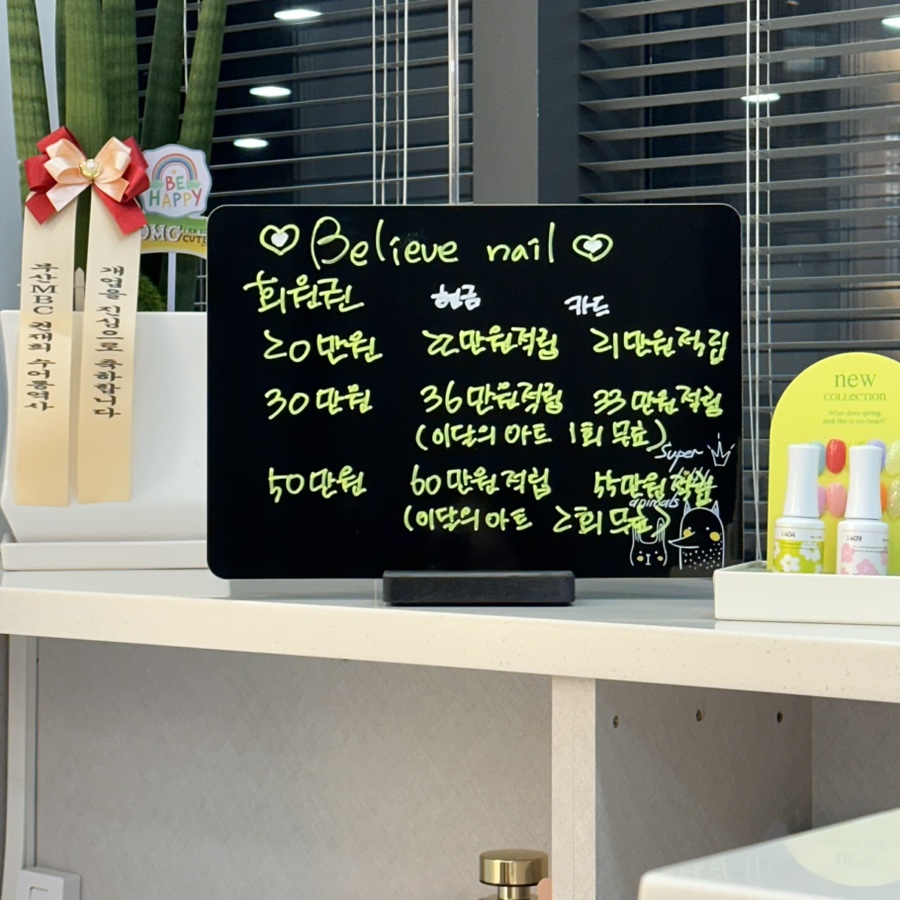 Believe nail
회원권 현금 카드
20만원 22만원적립 21만원적립
30만원 36만원적립 33만원적립
(이달의 아트 1회 무료)
50만원 60만원적립 55만원적립
(이달의 아트 2회 무료)
Super
animals
BE
HAPPY
OMG
CUTE
개업을 진심으로 축하합니다
부산MBC 전재희 수어통역사
new
COLLECTION
What does spring
look like in my heart?
L404
L409